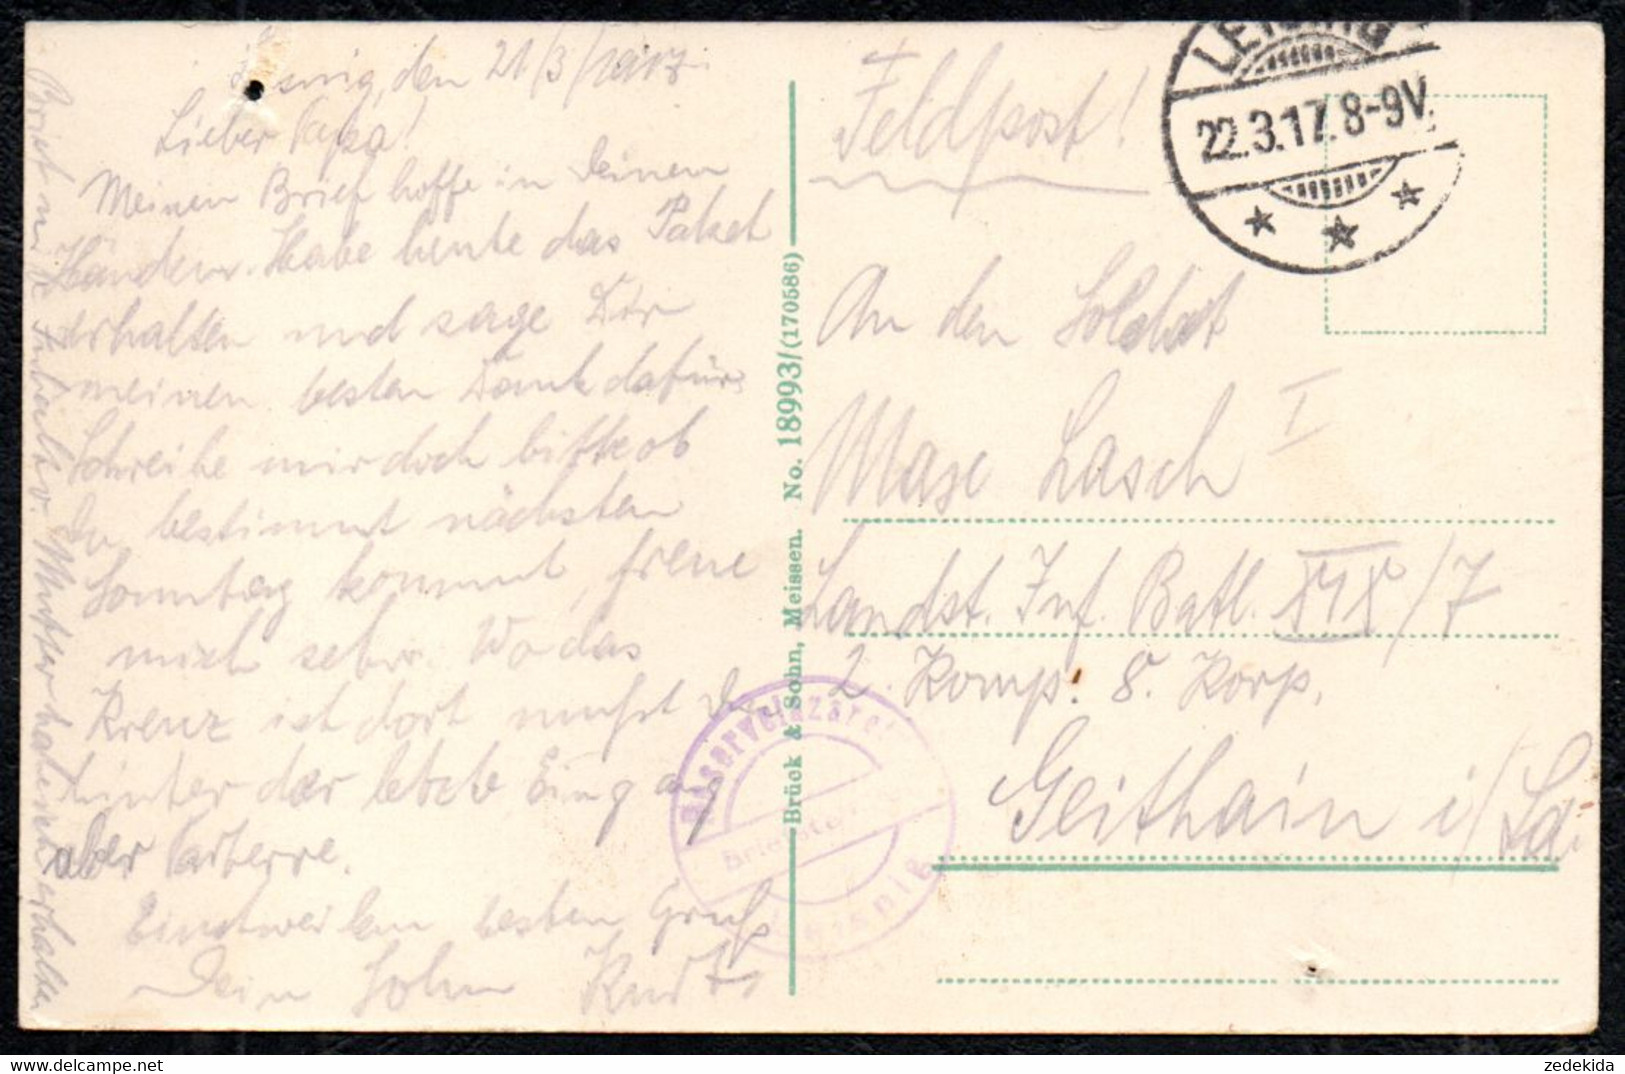 Leisnig, den 21/3/1917.
Lieber Papa!
Meinen Brief hoffe in Deinen
Händen. Habe heute das Paket
erhalten und sage Dir
meinen besten Dank dafür.
Schreibe mir doch bitte ob
Du bestimmt nächsten
Sonntag kommst, freue
mich sehr. Wo das
Kreuz ist dort mußt Du
hinter der letzte Eingang
aber Parterre.
Einstweilen besten Gruß
Dein Sohn
Brief mit Inhalt v. Mutter habe ich erhalten
Brück & Sohn, Meissen. No. 18993/(170586)
Feldpost!
LEISNIG
22.3.17.8-9V.
An den Soldat
Max Lasch I
Landst. Inf. Batl. XIX/7
2. Komp. 8. Korp.
Geithain i/Sa.
Reservelazaret
Briefstempel
Leisnig
zedekida